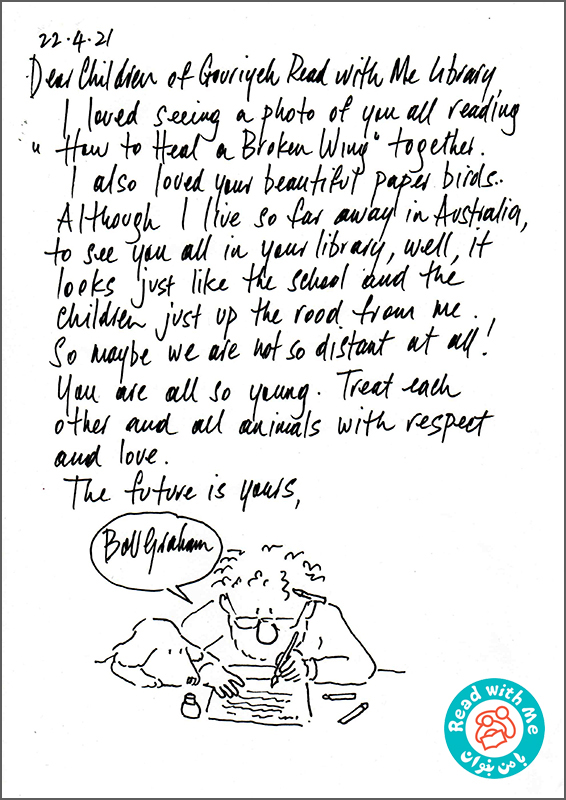 22.4.21
Dear Children of Gouriyeh Read with Me Library,
I loved seeing a photo of you all reading
"How to Heal a Broken Wing" together.
I also loved your beautiful paper birds.
Although I live so far away in Australia,
to see you all in your library, well, it
looks just like the school and the
children just up the road from me.
So maybe we are not so distant at all!
You are all so young. Treat each
other and all animals with respect
and love.
The future is yours,
Bob Graham
Read with Me
با من بخوان